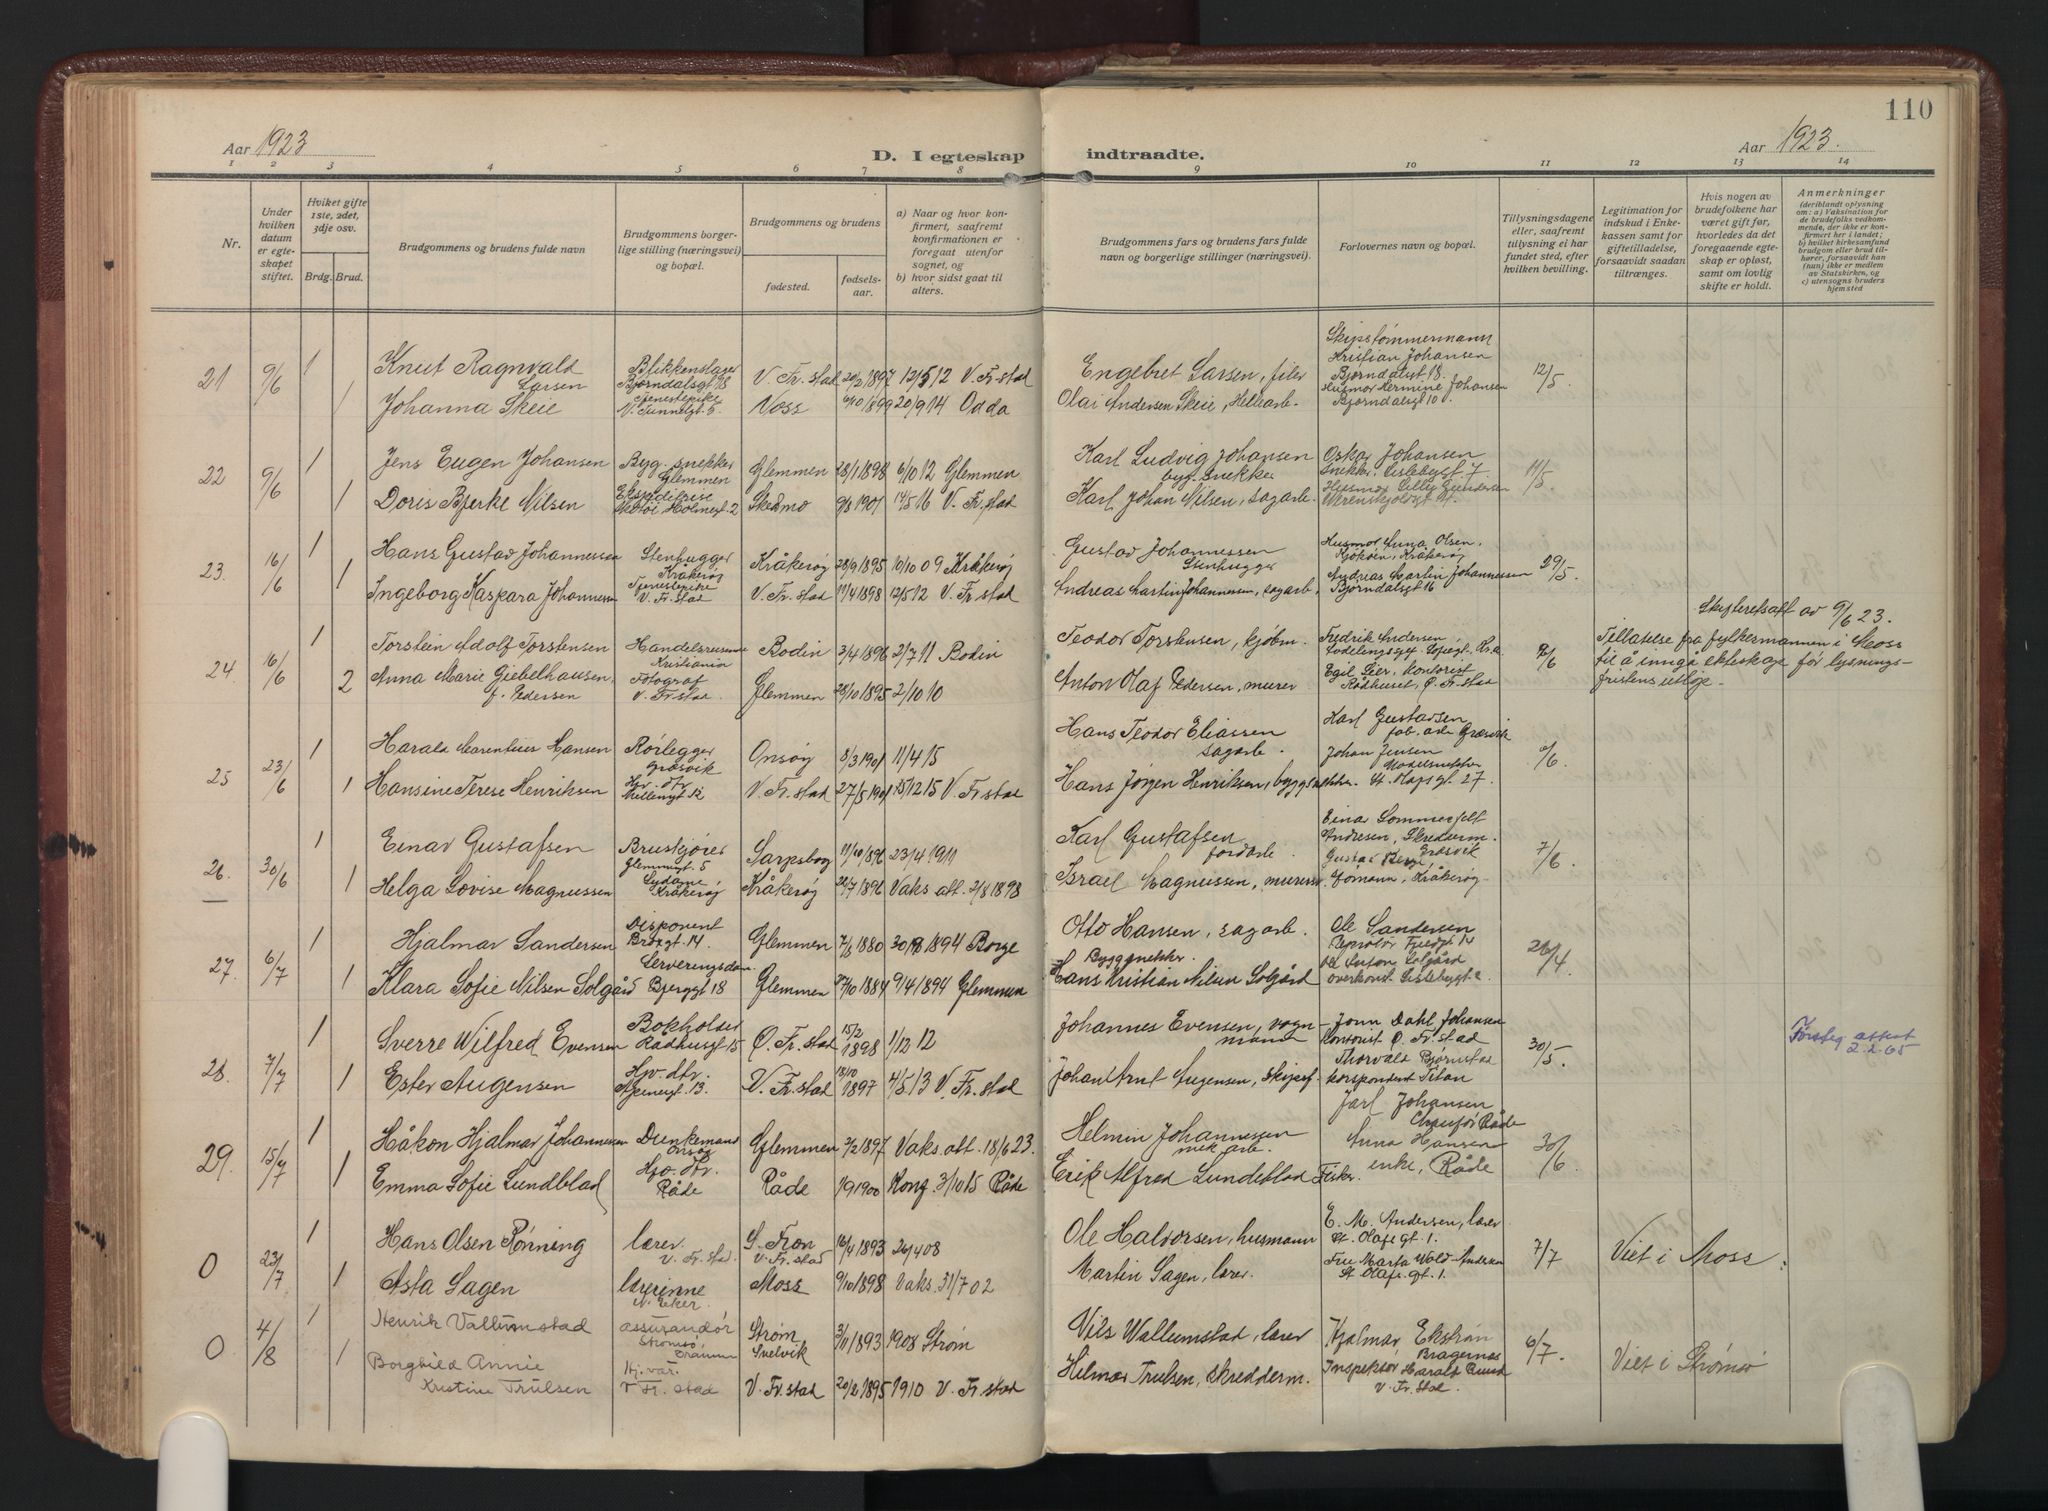 110
Aar 1923
D. I egteskap indtraadte.
Aar 1923.
1 2 3 4 5 6 7 8 9 10 11 12 13 14
Nr.
Under hvilken datum er egteskapet stiftet.
Hviket gifte 1ste, 2det, 3dje osv.
Brdg. Brud.
Brudgommens og brudens fulde navn
Brudgommens borgerlige stilling (næringsvei) og bopæl.
Brudgommens og brudens
fødested.
fødselsaar.
a) Naar og hvor konfirmert, saafremt konfirmationen er foregaat utenfor sognet, og
b) hvor sidst gaat til alters.
Brudgommens fars og brudens fars fulde navn og borgerlige stillinger (næringsvei).
Forlovernes navn og bopæl.
Tillysningsdagene eller, saafremt tillysning ei har fundet sted, efter hvilken bevilling.
Legitimation for indskud i Enkekassen samt for giftetilladelse, forsaavidt saadan tiltrænges.
Hvis nogen av brudefolkene har været gift før, hvorledes da det foregaaende egteskap er opløst, samt om lovlig skifte er holdt.
Anmerkninger
(deriblandt oplysning om: a) Vaksination for de brudefolks vedkommende, der ikke er konfirmert her i landet; b) hvilket kirkesamfund brudgom eller brud tilhører, forsaavidt han (hun) ikke er medlem av Statskirken, og c) utensogns bruders hjemsted
21 9/6 1 Knut Ragnvald Larsen Blikkenslager Bjørndalsgt 18 V. Fr. stad 20/2 1897 12/5 12 V. Fr. stad Engebret Larsen, filer Skipstømmermann Kristian Johansen Bjørndalsgt 18. 12/5.
1 Johanna Skeie Tjenestepike V. Tunnelgt 6 Voss 6/10 1899 20/9 14 Odda Olai Andersen Skeie, Husmor Hermine Johansen Bjørndalsgt 10
22 9/6 1 Jens Eugen Johansen Byg. snekker Glemmen Glemmen 28/1 1898 6/10 12 Glemmen Karl Ludvig Johansen byg. snekker Oskar Johansen Snekker. Lislebygt 7 11/5
1 Doris Bjerke Nilsen Ekspeditrise Holmegt. 2 Skedsmo 9/3 1901 14/5 16 V. Fr. stad Karl Johan Nilsen, sagarb. Husmor Lilly Gundersen
23. 16/6 1 Hans Gustav Johannessen Stenhugger Kråkerøy Kråkerøy 28/9 1895 10/10 09 Kråkerøy Gustav Johannessen Stenhugger Husmor Anna Olsen, Kjøkøen, Kråkerøy 29/5.
1 Ingeborg Kaspara Johannessen Tjenestepike V. Fr. stad V. Fr. stad 11/4 1898 12/5 12 V. Fr stad Andreas Martin Johannessen, sagarb. Andreas Martin Johannessen Bjørndalsgt 16
24 16/6 1 Torstein Adolf Torstensen Handelsreisende Kristiania Bodin 3/4 1896 2/7 11 Bodin Teodor Torstensen, kjøbm. Fredrik Andersen, Kr.a. 9/6 Skifteretsatt av 9/6 23. Tillatelse fra fylkesmannen i Moss til å inngå ekteskap før lysningsfristens utløp.
2 Anna Marie Giebelhausen, f. Pedersen Fotograf V. Fr. stad Glemmen 28/10 1895 2/10 10 Anton Olaf Pedersen, murer Egil Lier, kontorist Rådhuset, Ø. Fr. stad
25 23/6 1 Harald Marentius Hansen Rørlegger Græsvik Onsøy 8/3 1901 11/4 15 Hans Teodor Eliassen sagarb. Karl Gustavsen fab. arb. Græsvik
1 Hansine Terese Henriksen Hjv. dtr. Møllengt 12 V. Fr. stad 27/5 1901 15/12 15 V. Fr stad Hans Jørgen Henriksen, byggsnekker. Johan Jensen Modelsnekker St. Olafsgt. 27.
26. 30/6 1 Einar Gustafsen Bruskjører Glemmengt. 5 Sarpsborg 11/10 1896 23/4 1911 Karl Gustafsen jordarb. Einar Sommerfelt Andresen, Skredderm. Græsvik 7/6.
1 Helga Lovise Magnussen Sydame Kråkerøy Kråkerøy 22/7 1896 Vaks att. 2/8 1898 Israel Magnussen, murer Gustav Berge, Kråkerøy
27. 6/7 1 Hjalmar Sandersen Disponent Brogt. 14. Glemmen 7/3 1880 30/9 1894 Borge Otto Hansen, sagarb. Ole Sandersen 26/4.
1 Klara Sofie Nilsen Solgård Serveringsdame Bjerggt 18 Glemmen 27/10 1884 9/4 1894 Glemmen Byggsnekker. Hans Kristian Nilsen Solgård Anton Solgård Lislebygt 2
28. 7/7 1 Sverre Wilfred Evensen Bokholder Rådhusgt 15 Ø. Fr. stad 15/2 1898 1/12 12 Johannes Evensen, vognmand Jonn Dahl Johansen Kontorist Ø. Fr. stad 30/5. Førsteg. attest 2.2.65
1 Ester Augensen Hjv. dtr. Agentgt. 13. V. Fr. stad 13/10 1897 4/5 13 V. Fr. stad Johan Arnt Augensen, skipsf. Thorvald Bjørnstad korspondent Titan
29. 15/7 1 Håkon Hjalmar Johannessen Dunkemand Onsøy Glemmen 2/2 1897 Vaks. att. 18/6 23. Helmin Johannessen mek arb. Jarl Johansen Chauför Råde 30/6.
1 Emma Sofie Lundblad Hjv. dtr. Råde Råde 1900 Konf. 3/10 15 Råde Erik Alfred Lundeblad Fisker. Anna Hansen enke, Råde
0 23/7 1 Hans Olsen Rønning lærer. V. Fr. stad. S. Fron V. Fr. stad 16/4 1893 26/4 08 Ole Halvorsen, husmann E. M. Andersen, lærer St. Olafsgt. 1. 7/7 Viet i Moss.
1 Asta Sagen lærerinne N. Eker. Moss 9/10 1898 Vaks. 31/7 02 Martin Sagen, lærer. Fru Marta Wold-Andersen St Olafsgt. 1.
0 4/8 1 Henrik Vallumstad assurandør Strømsø, Drammen Strøm Svelvik 3/11 1893 1908 Strøm Nils Wallumstad, lærer Hjalmar Ekstrøm Bragernes 6/7. Viet i Strømsø
1 Borghild Annie Kristine Trulsen Hj. vær. V Fr. stad V. Fr. stad 20/2 1895 1910 V. Fr stad Hilmar Trulsen, skredderm. Inspektør Harald Ruud V. Fr. stad.